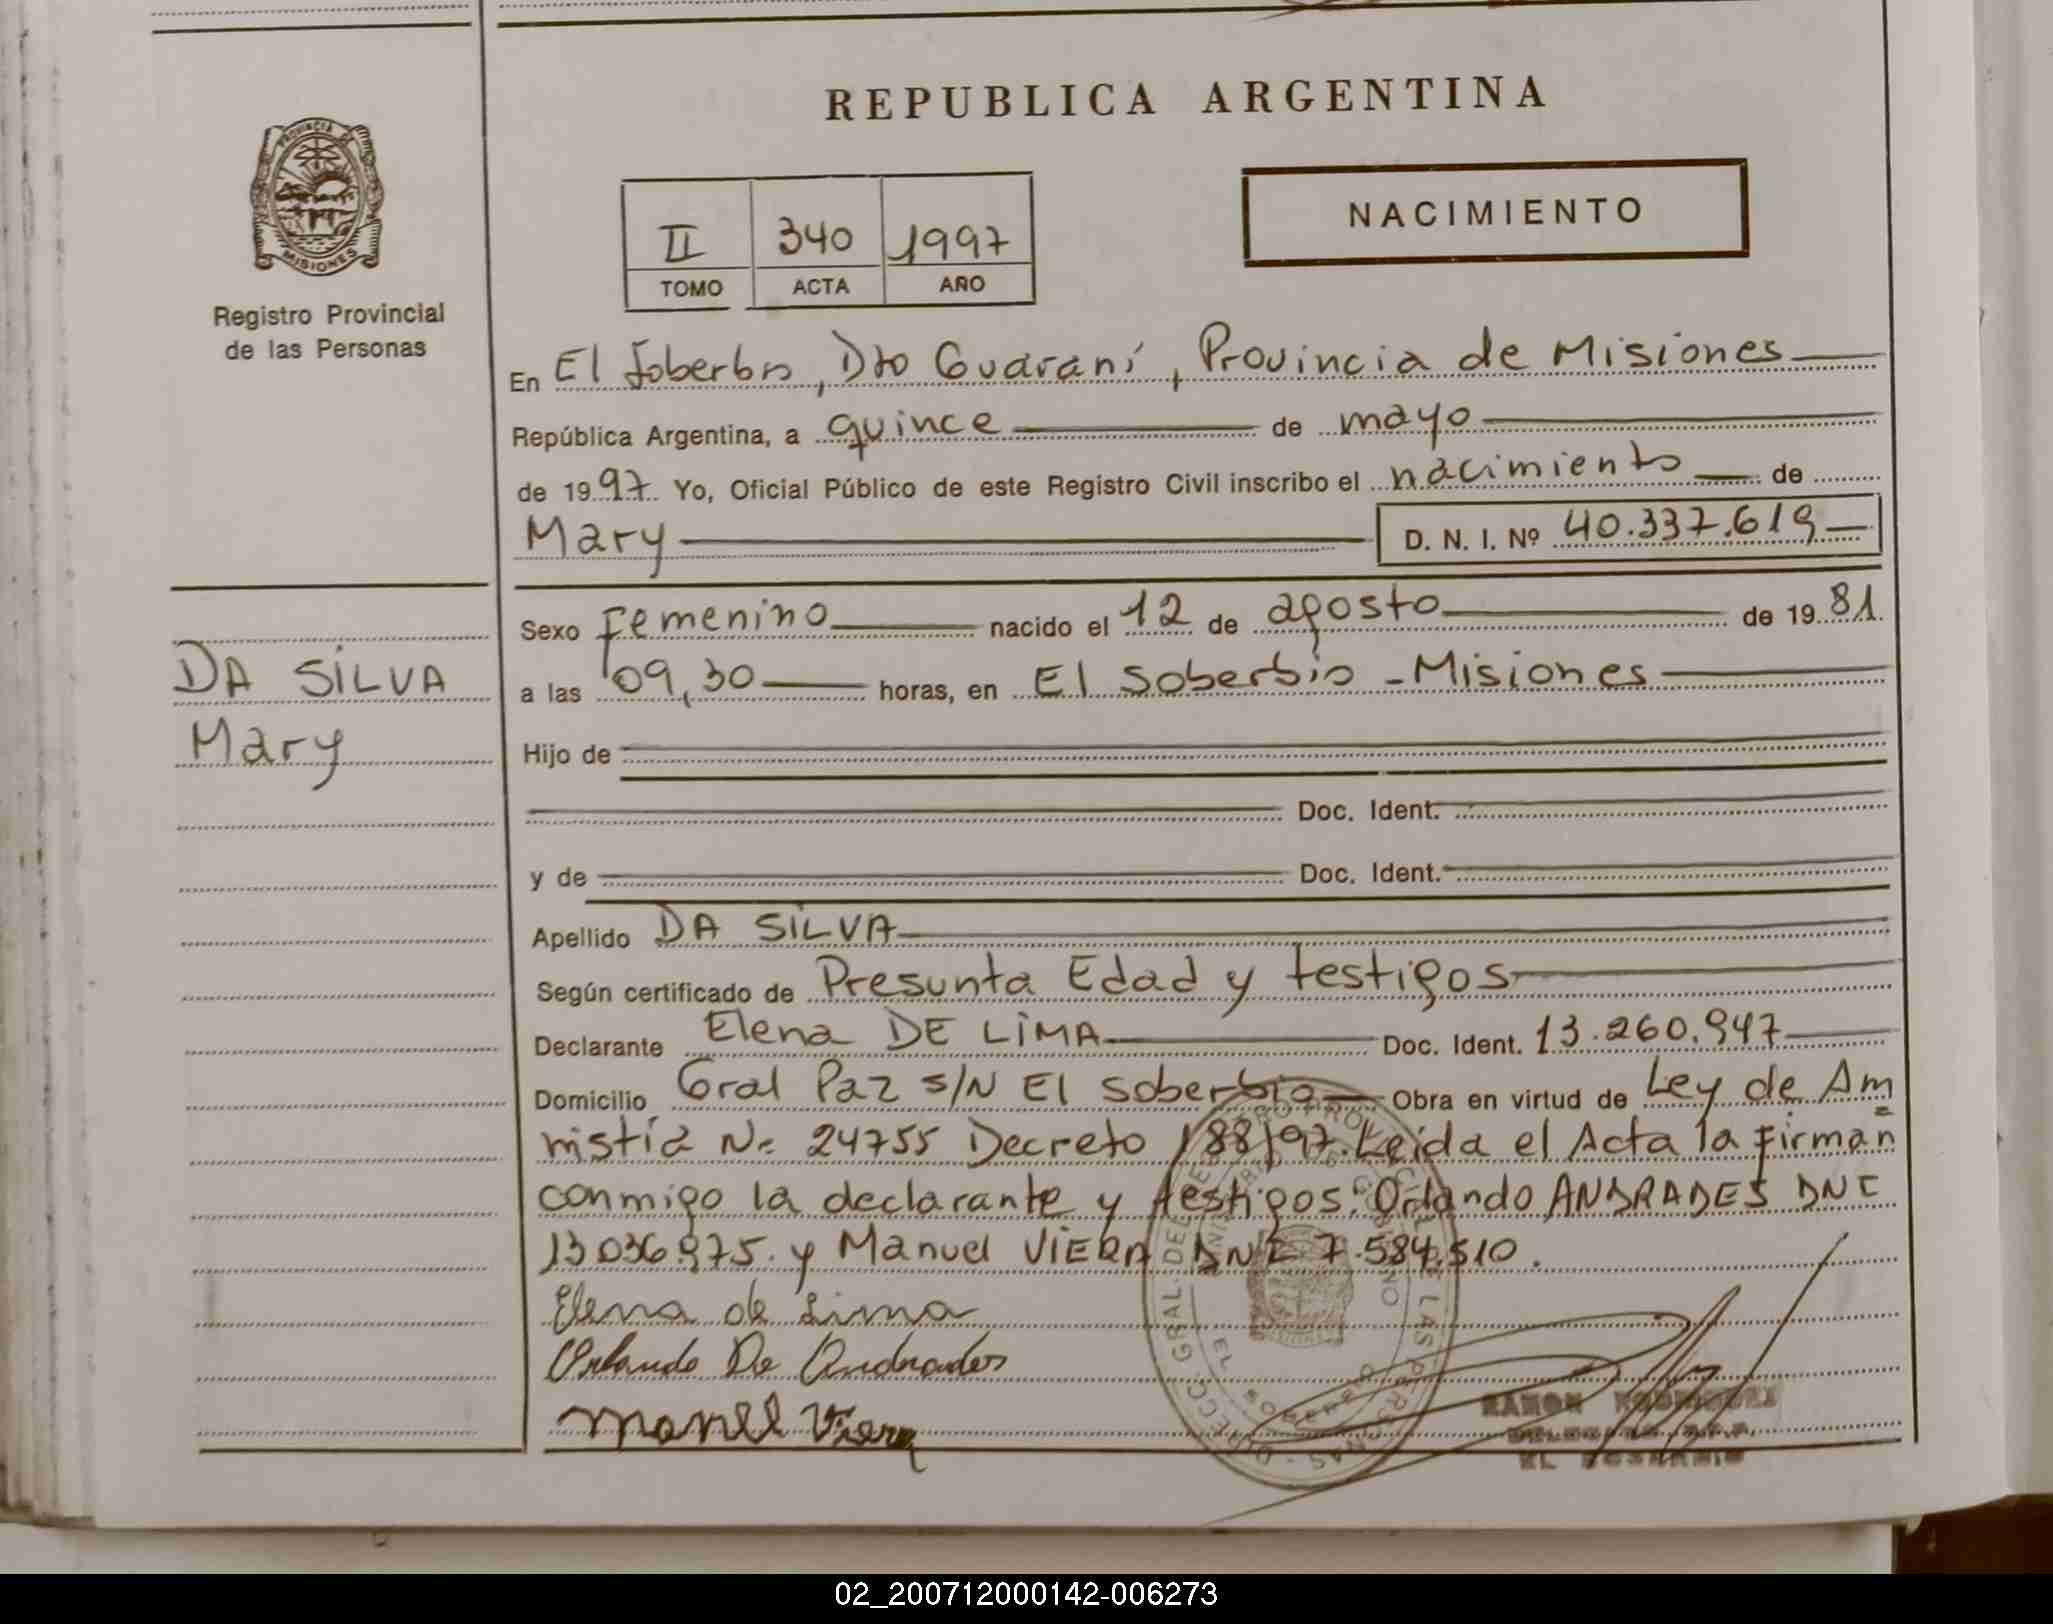 REPUBLICA ARGENTINA
PROVINCIA DE
MISIONES
Registro Provincial
de las Personas
II 340 1997
TOMO ACTA AÑO
NACIMIENTO
En El Soberbio, Dto Guaraní, Provincia de Misiones
República Argentina, a quince de mayo
de 1997 Yo, Oficial Público de este Registro Civil inscribo el nacimiento de
Mary D. N. I. Nº 40.337.619
DA SILVA
Mary
Sexo Femenino nacido el 12 de agosto de 1981
a las 09,30 horas, en El Soberbio - Misiones
Hijo de
Doc. Ident.
y de Doc. Ident.
Apellido DA SILVA
Según certificado de Presunta Edad y testigos
Declarante Elena DE LIMA Doc. Ident. 13.260.947
Domicilio Gral Paz S/N El Soberbio Obra en virtud de Ley de Am
nistía Nº 24755 Decreto 188/97. Leída el Acta la firman
conmigo la declarante y testigos: Orlando ANDRADES DNI
13036.975. y Manuel VIERA DNI 7.584.510.
Elena de Lima
Orlando De Andrades
Manuel Viera
RAMON RODRIGUEZ
EL SOBERBIO
02_200712000142-006273